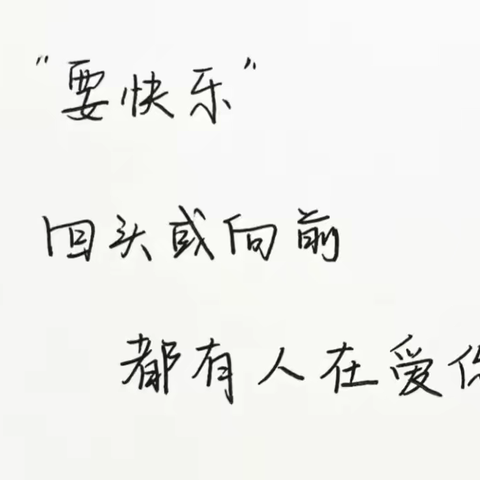 "要快乐"
回头或向前
都有人在爱你